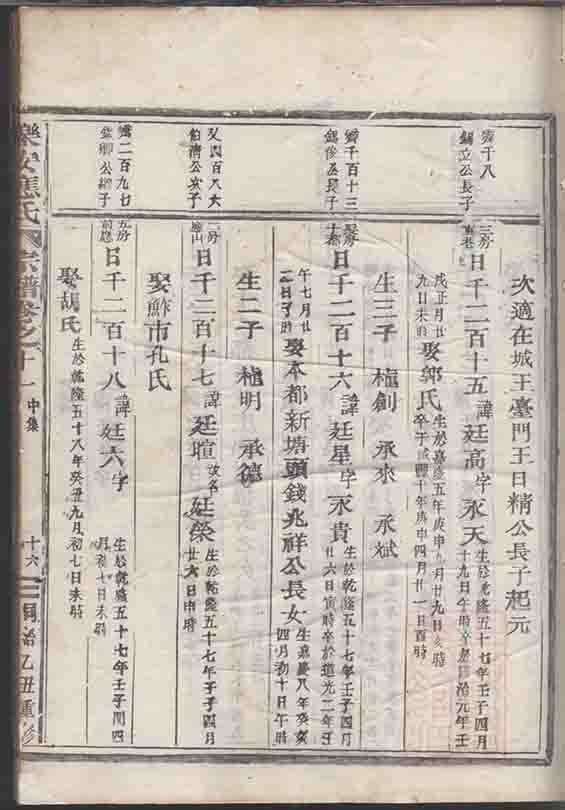 次適在城王臺門王日精公長子起元
霽千八
錫立公長子
三房
日千二百十五 諱廷高字永天
生於乾隆五十七年壬子四月
十九日午時卒於同治元年壬
戌正月廿
九日未時
娶郭氏
生於嘉慶五年庚申九月廿九日亥時
卒于咸豐十年庚申四月廿一日酉時
生三子 槌創 承來 承斌
霽千百十三
錫俊公長子
日千二百十六 諱廷星字永貴
生於乾隆五十七年壬子四月
廿六日寅時卒於道光二年壬
午七月廿
二日子時
娶本都新塘頭錢兆祥公長女
生嘉慶八年癸亥
四月初十日午時
生二子 槌明 承德
又四百八六
伯濟公次子
二房
日千二百十七 諱廷暄 改名 廷榮
生於乾隆五十七年壬子四月
廿六日申時
娶鮓市孔氏
霽二百九七
五房
前應
日千二百十八 諱廷六字
生於乾隆五十七年壬子閏四
月初七日未時
娶胡氏
生於乾隆五十八年癸丑九月初七日未時
樂安應氏 宗譜卷之十一 中集
十六
同治乙丑重修